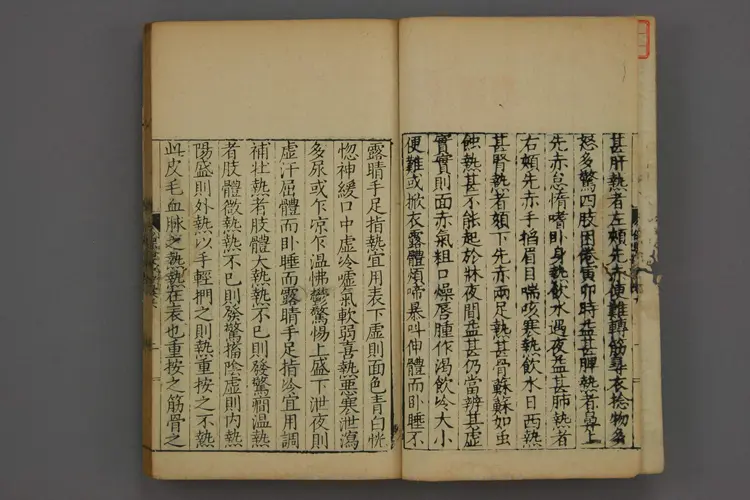 甚肝熱者左頰先赤便難轉筋尋衣捻物多
怒多驚四肢困倦寅卯時益甚脾熱者鼻上
先赤怠惰嗜卧身熱飲水遇夜益甚肺熱者
右頰先赤手掐眉目喘咳寒熱飲水日西熱
甚腎熱者頦下先赤兩足熱甚骨蘇蘇如虫
蝕熱甚不能起於牀夜間益甚仍當辨其虚
實實則面赤氣粗口燥唇腫作渴飲冷大小
便難或掀衣露體煩啼暴叫伸體而卧睡不
露睛手足指熱宜用表下虚則面色青白恍
惚神緩口中虚冷嘘氣軟弱喜熱惡寒泄瀉
多尿或乍凉乍溫怫鬱驚惕上盛下泄夜則
虚汗屈體而卧睡而露睛手足指冷宜用調
補壮熱者肢體大熱熱不已則發驚癇溫熱
者肢體微熱熱不已則發驚搐陰虚則内熱
陽盛則外熱以手輕捫之則熱重按之不熱
此皮毛血脉之熱熱在表也重按之筋骨之